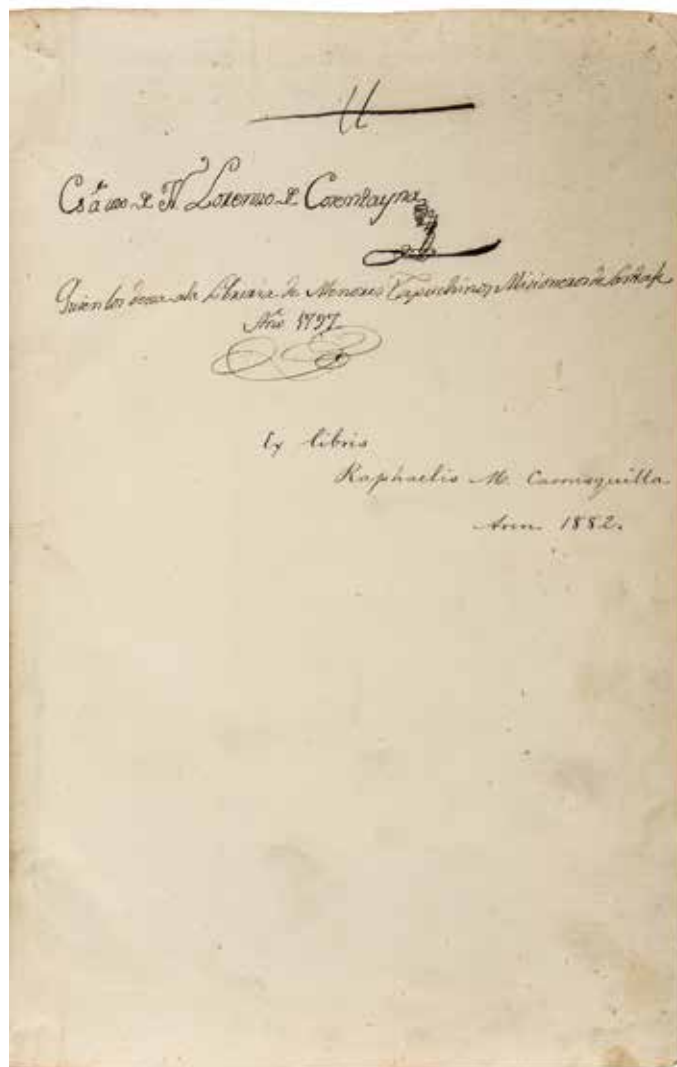 11
Es a uso de Fr. Lorenzo de Cosentayna
Quien los dona a la Libreria de Menores Capuchinos Misioneros de Santa fe
Año 1797
Ex libris
Raphaelis M. Carrasquilla
Ann. 1882.